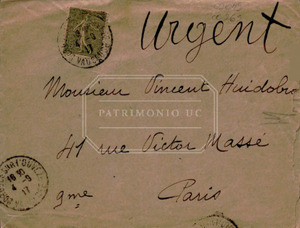 Urgent
Monsieur Vincent Huidobro
PATRIMONIO UC
41 rue Victor Massé
9me Paris